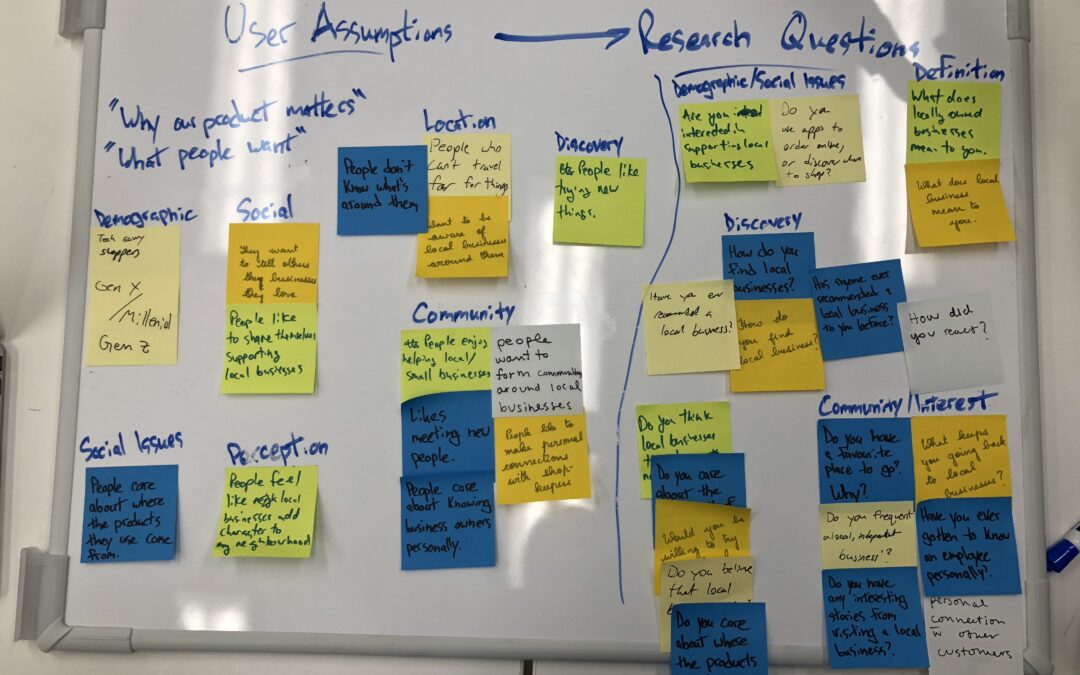 User Assumptions
Research Questions
"Why our product matters"
"What people want"
Demographic
Tech savvy
shoppers
Gen X
/ Millenial
Gen Z
Social
They want
to tell others
they businesses
they love
People like
to share themselves
supporting
local businesses
Location
People don't
Know what's
around them
People who
can't travel
far for things
Want to be
aware of
local businesses
around them
Discovery
People like
trying new
things.
Community
People enjoy
helping local/
small businesses
people
want to
form communities
around local
businesses
Likes
meeting new
people.
People like to
make personal
connections
with shop-
keepers
People care
about Knowing
business owners
personally.
Social Issues
People care
about where
the products
they use come
from.
Perception
People feel
like local
businesses add
character to
my neighbourhood
Demographic/Social Issues
Are you
interested in
supporting local
businesses
Do you
use apps to
order online,
or discover where
to shop?
Definition
What does
locally owned
businesses
mean to you.
What does local
business
mean to
you.
Discovery
How do you
find local
businesses?
Have you ever
a
local business?
How do
you find
local business?
Has anyone ever
recommended a
local business
to you before?
How did
you react?
Do you think
local businesses
Do you care
about the
Would you be
willing to try
Do you believe
that local
Do you care
about where
the products
Community/Interest
Do you have
a favourite
place to go?
Why?
What keeps
you going back
to local
businesses?
Do you frequent
a local, independent
business?
Have you ever
gotten to know
an employee
personally?
Do you have
any interesting
stories from
visiting a local
business?
personal
connection
w other
customers